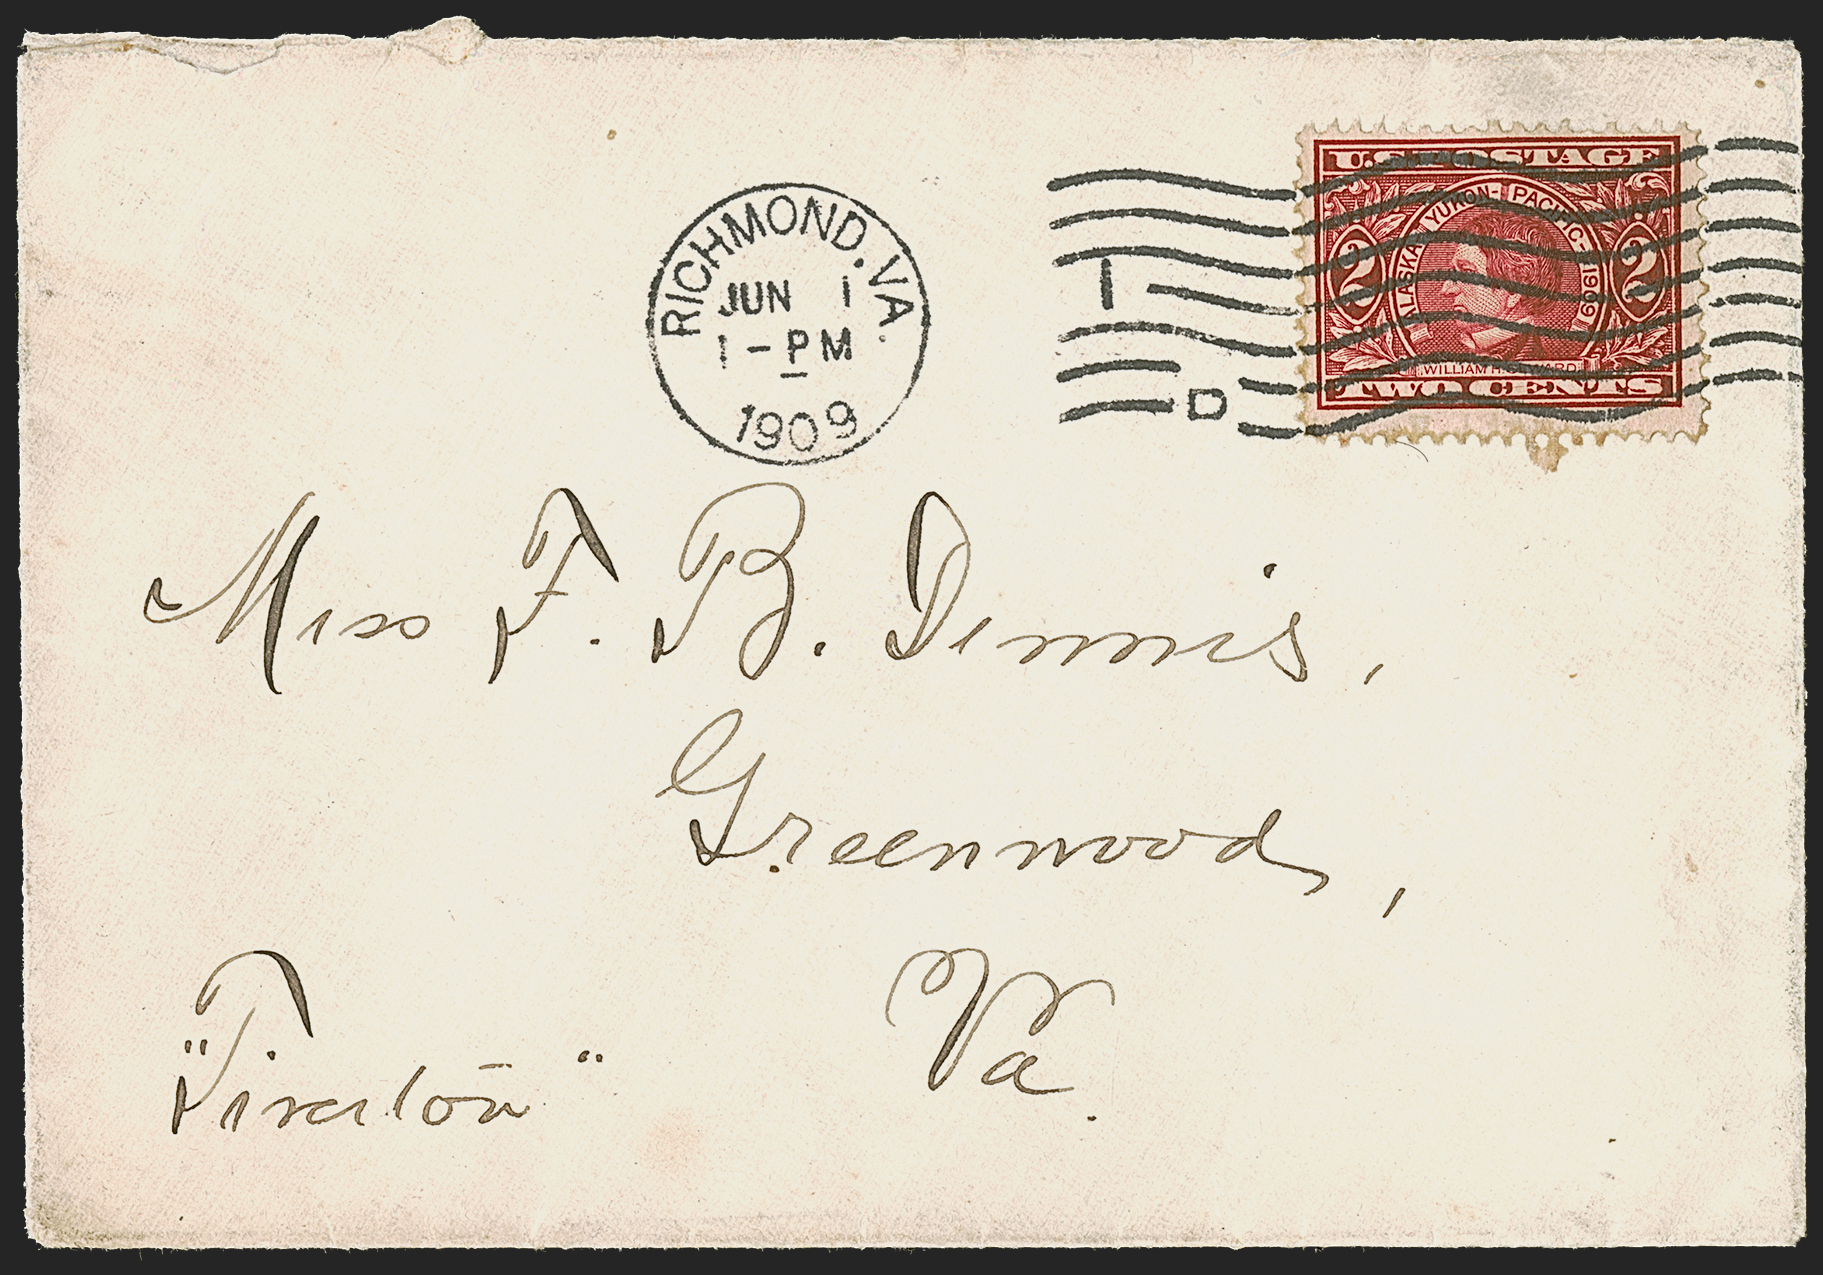 RICHMOND, VA.
JUN 1
1-PM
1909
1
D
U.S. POSTAGE
ALASKA-YUKON-PACIFIC-1909
2 2
WILLIAM H. SEWARD
TWO CENTS
Miss F. B. Dennis,
Greenwood,
Va.
"Tiverton"